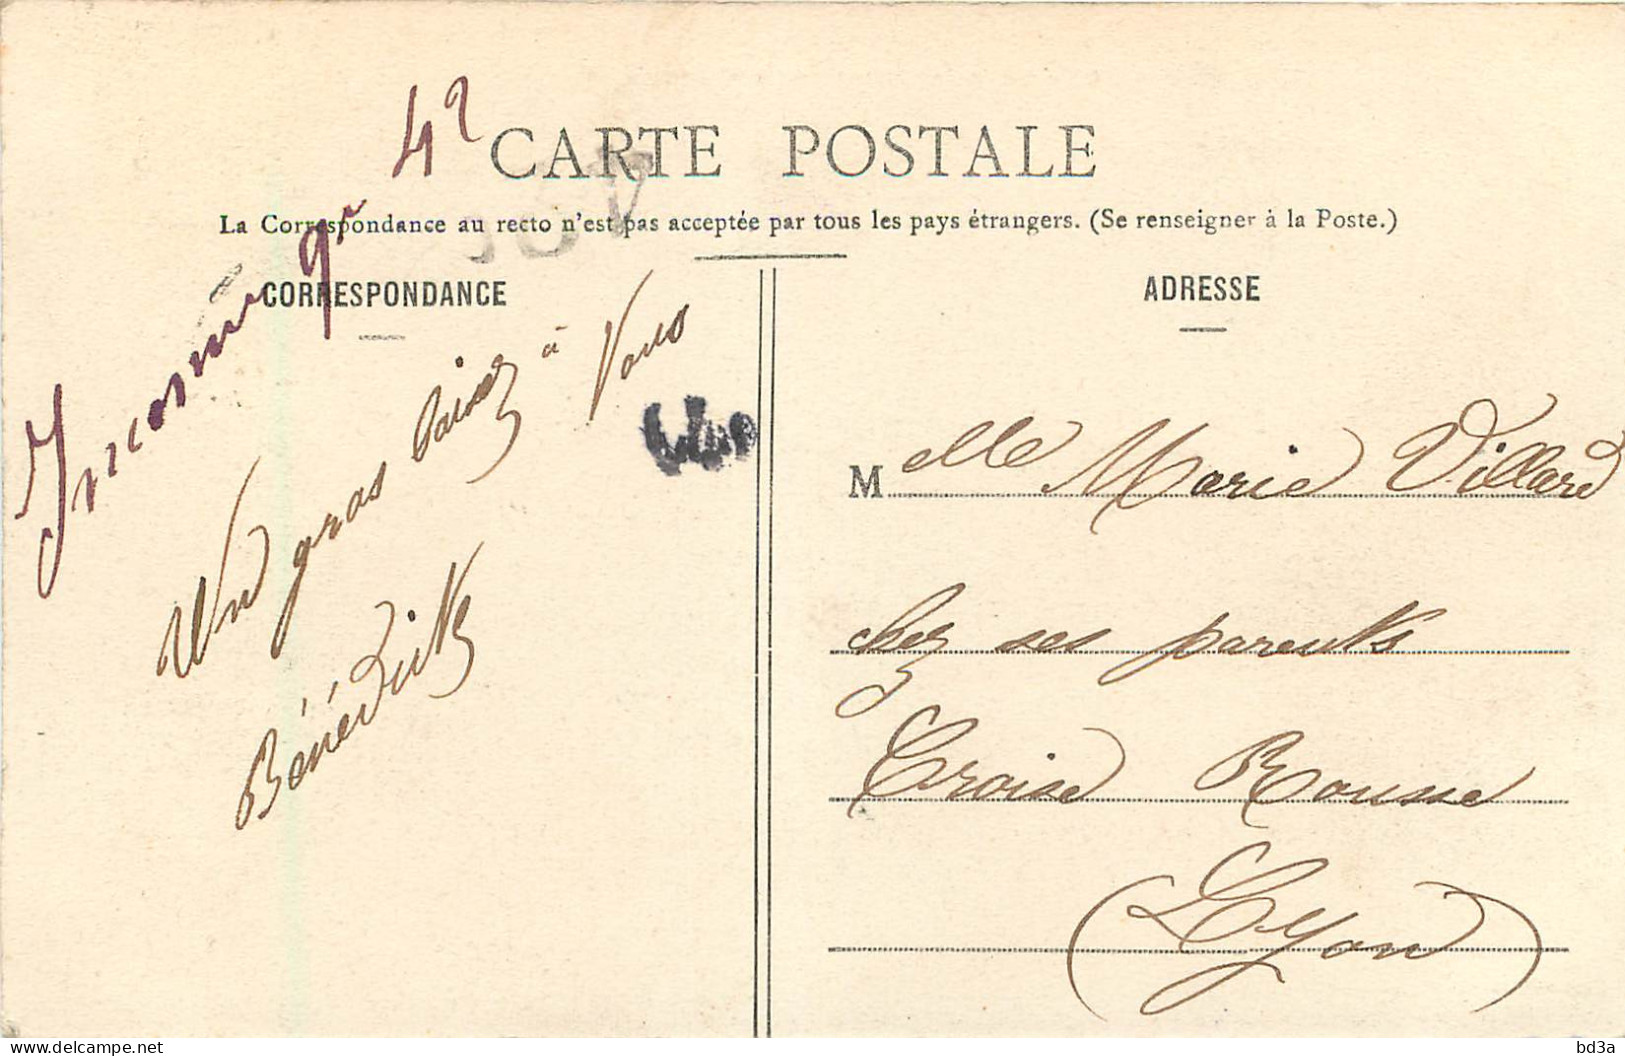 CARTE POSTALE
La Correspondance au recto n'est pas acceptée par tous les pays étrangers. (Se renseigner à la Poste.)
CORRESPONDANCE
ADRESSE
Inconnu
Un gros baiser à Vous
Bénédicte
Melle Marie Villard
chez ses parents
Croise Rousse
(Lyon)
bd3a